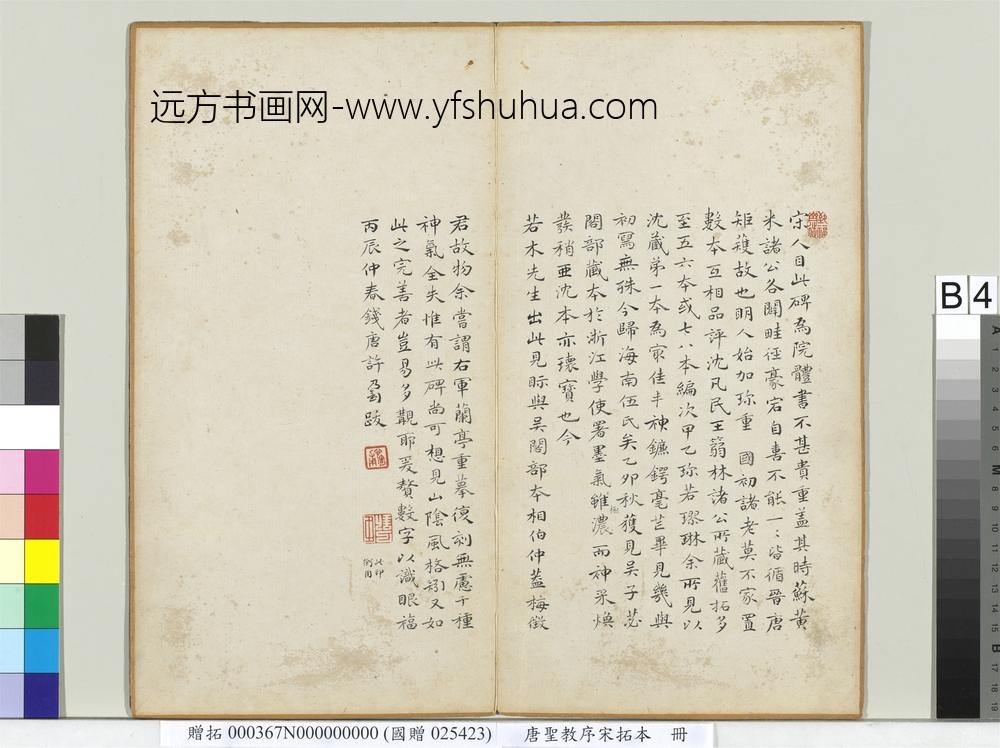 远方书画网-www.yfshuhua.com
宋人目此碑為院體書不甚貴重蓋其時蘇黃
米諸公各闢畦徑豪宕自喜不能一一皆循晉唐
矩矱故也明人始加珍重 國初諸老莫不家置
數本互相品評沈凡民王蒻林諸公所藏舊拓多
至五六本或七八本編次甲乙珍若璆琳余所見以
沈藏弟一本為最佳丰神鑣鍔毫芒畢見幾與
初寫無殊今歸海南伍氏矣乙卯秋獲見吴子苾
閣部藏本於浙江學使署墨氣雖濃而神采煥
發稍亞沈本亦瓌寶也今
若木先生出此見眎與吴閣部本相伯仲蓋梅徵
君故物余嘗謂右軍蘭亭重摹復刻無慮千種
神氣全失惟有此碑尚可想見山陰風格矧又如
此之完善者豈易多覯耶爰贅數字以識眼福
丙辰仲春錢唐許乃 跋
此印
倒用
B 4
贈拓 000367N000000000 (國贈 025423) 唐聖教序宋拓本 冊